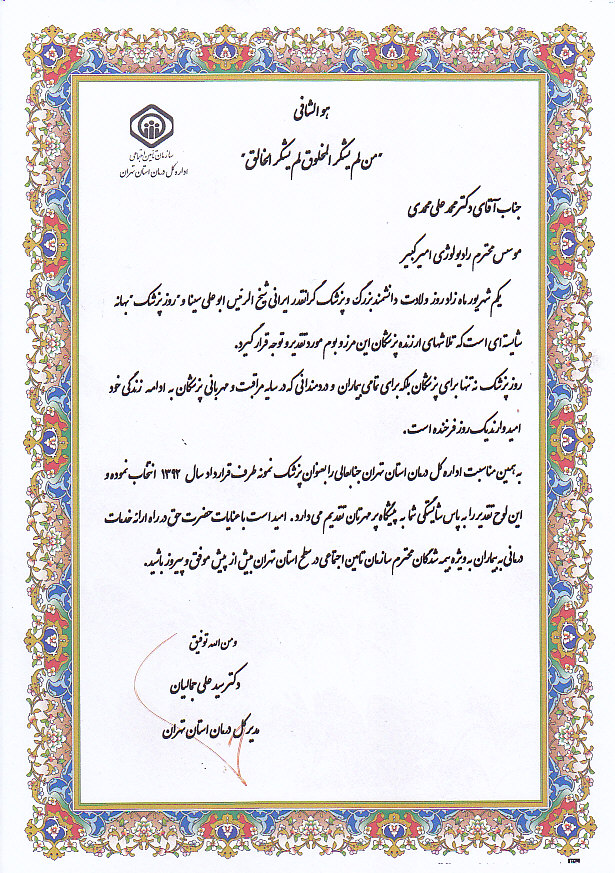 هوالشافی
"من لم یشکر المخلوق لم یشکر الخالق"
سازمان تامین اجتماعی
اداره کل درمان استان تهران
جناب آقای دکتر محمد علی محمدی
موسس محترم رادیولوژی امیرکبیر
یکم شهریور ماه زادروز ولادت دانشمند بزرگ و پزشک گرانقدر ایرانی شیخ الرئیس ابوعلی سینا و "روز پزشک" بهانه
شایسته ای است که تلاشهای ارزنده پزشکان این مرز و بوم مورد تقدیر و توجه قرار گیرد.
روز پزشک نه تنها برای پزشکان بلکه برای تمامی بیماران و دردمندانی که در سایه مراقبت و مهربانی پزشکان به ادامه زندگی خود
امیدوارند یک روز فرخنده است.
به همین مناسبت اداره کل درمان استان تهران جنابعالی را بعنوان پزشک نمونه طرف قرارداد سال ۱۳۹۲ انتخاب نموده و
این لوح تقدیر را به پاس شایستگی شما به پیشگاه پر مهرتان تقدیم می دارد. امید است با عنایات حضرت حق در راه ارائه خدمات
درمانی به بیماران به ویژه بیمه شدگان محترم سازمان تامین اجتماعی در سطح استان تهران بیش از پیش موفق و پیروز باشید.
ومن الله توفیق
دکتر سید علی جمالیان
مدیر کل درمان استان تهران